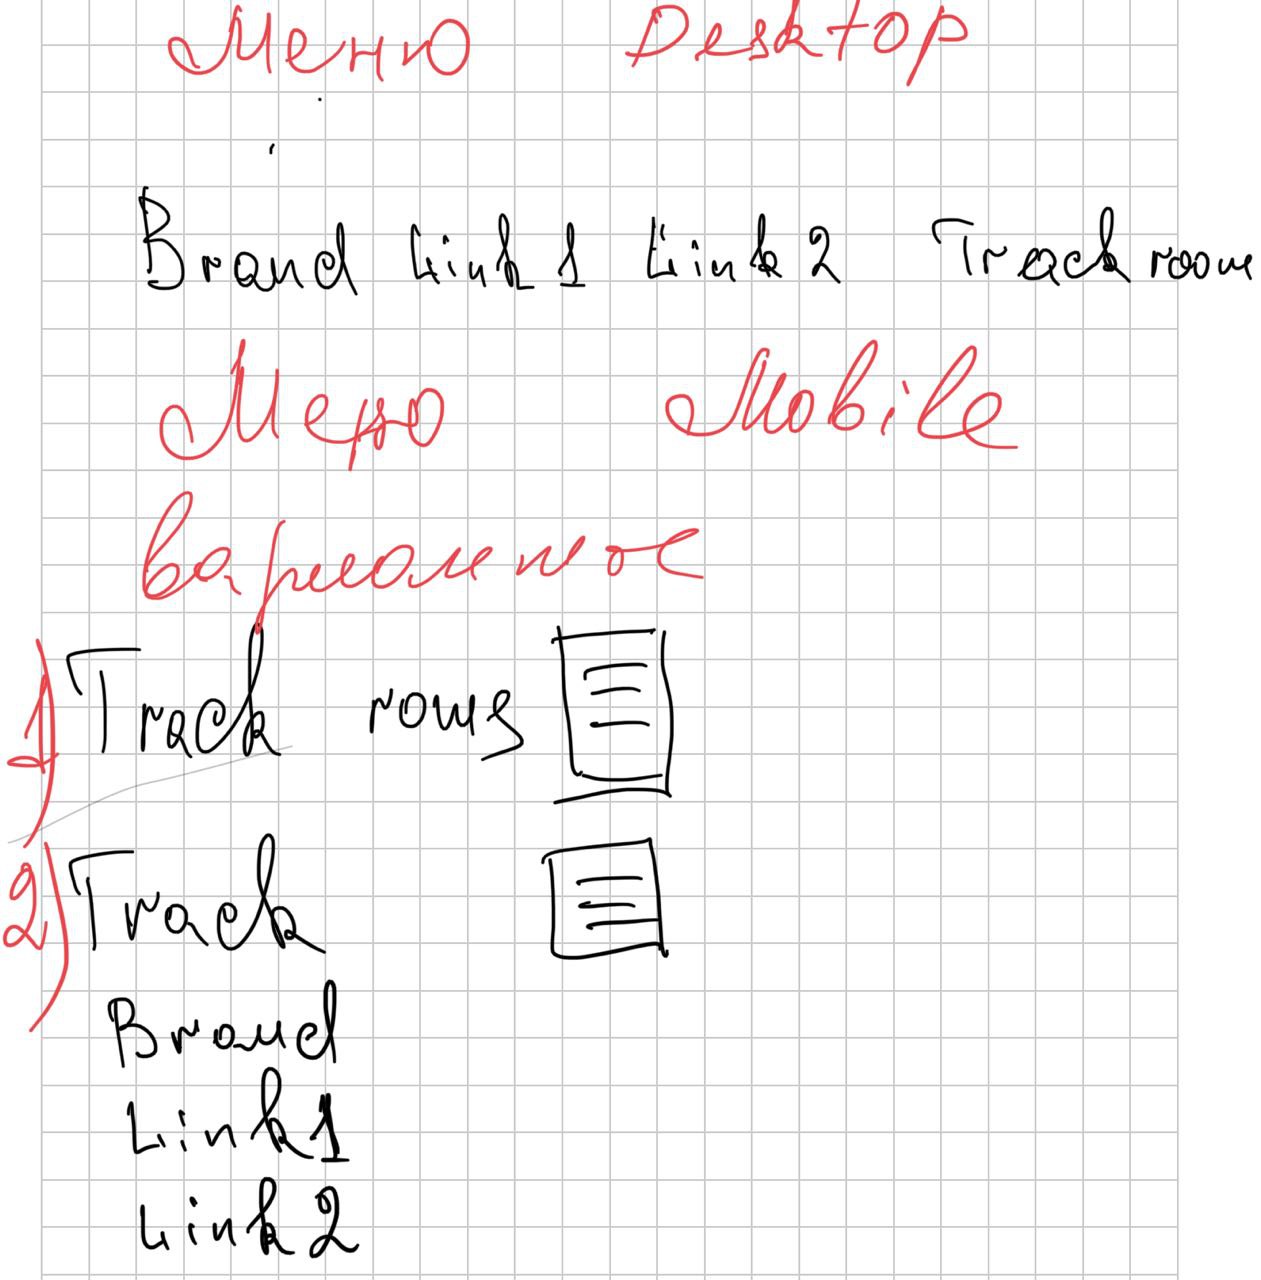 Меню Desktop
Brand Link 1 Link 2 Track room
Меню Mobile
1) Track
2) Track
Brand
Link 1
Link 2